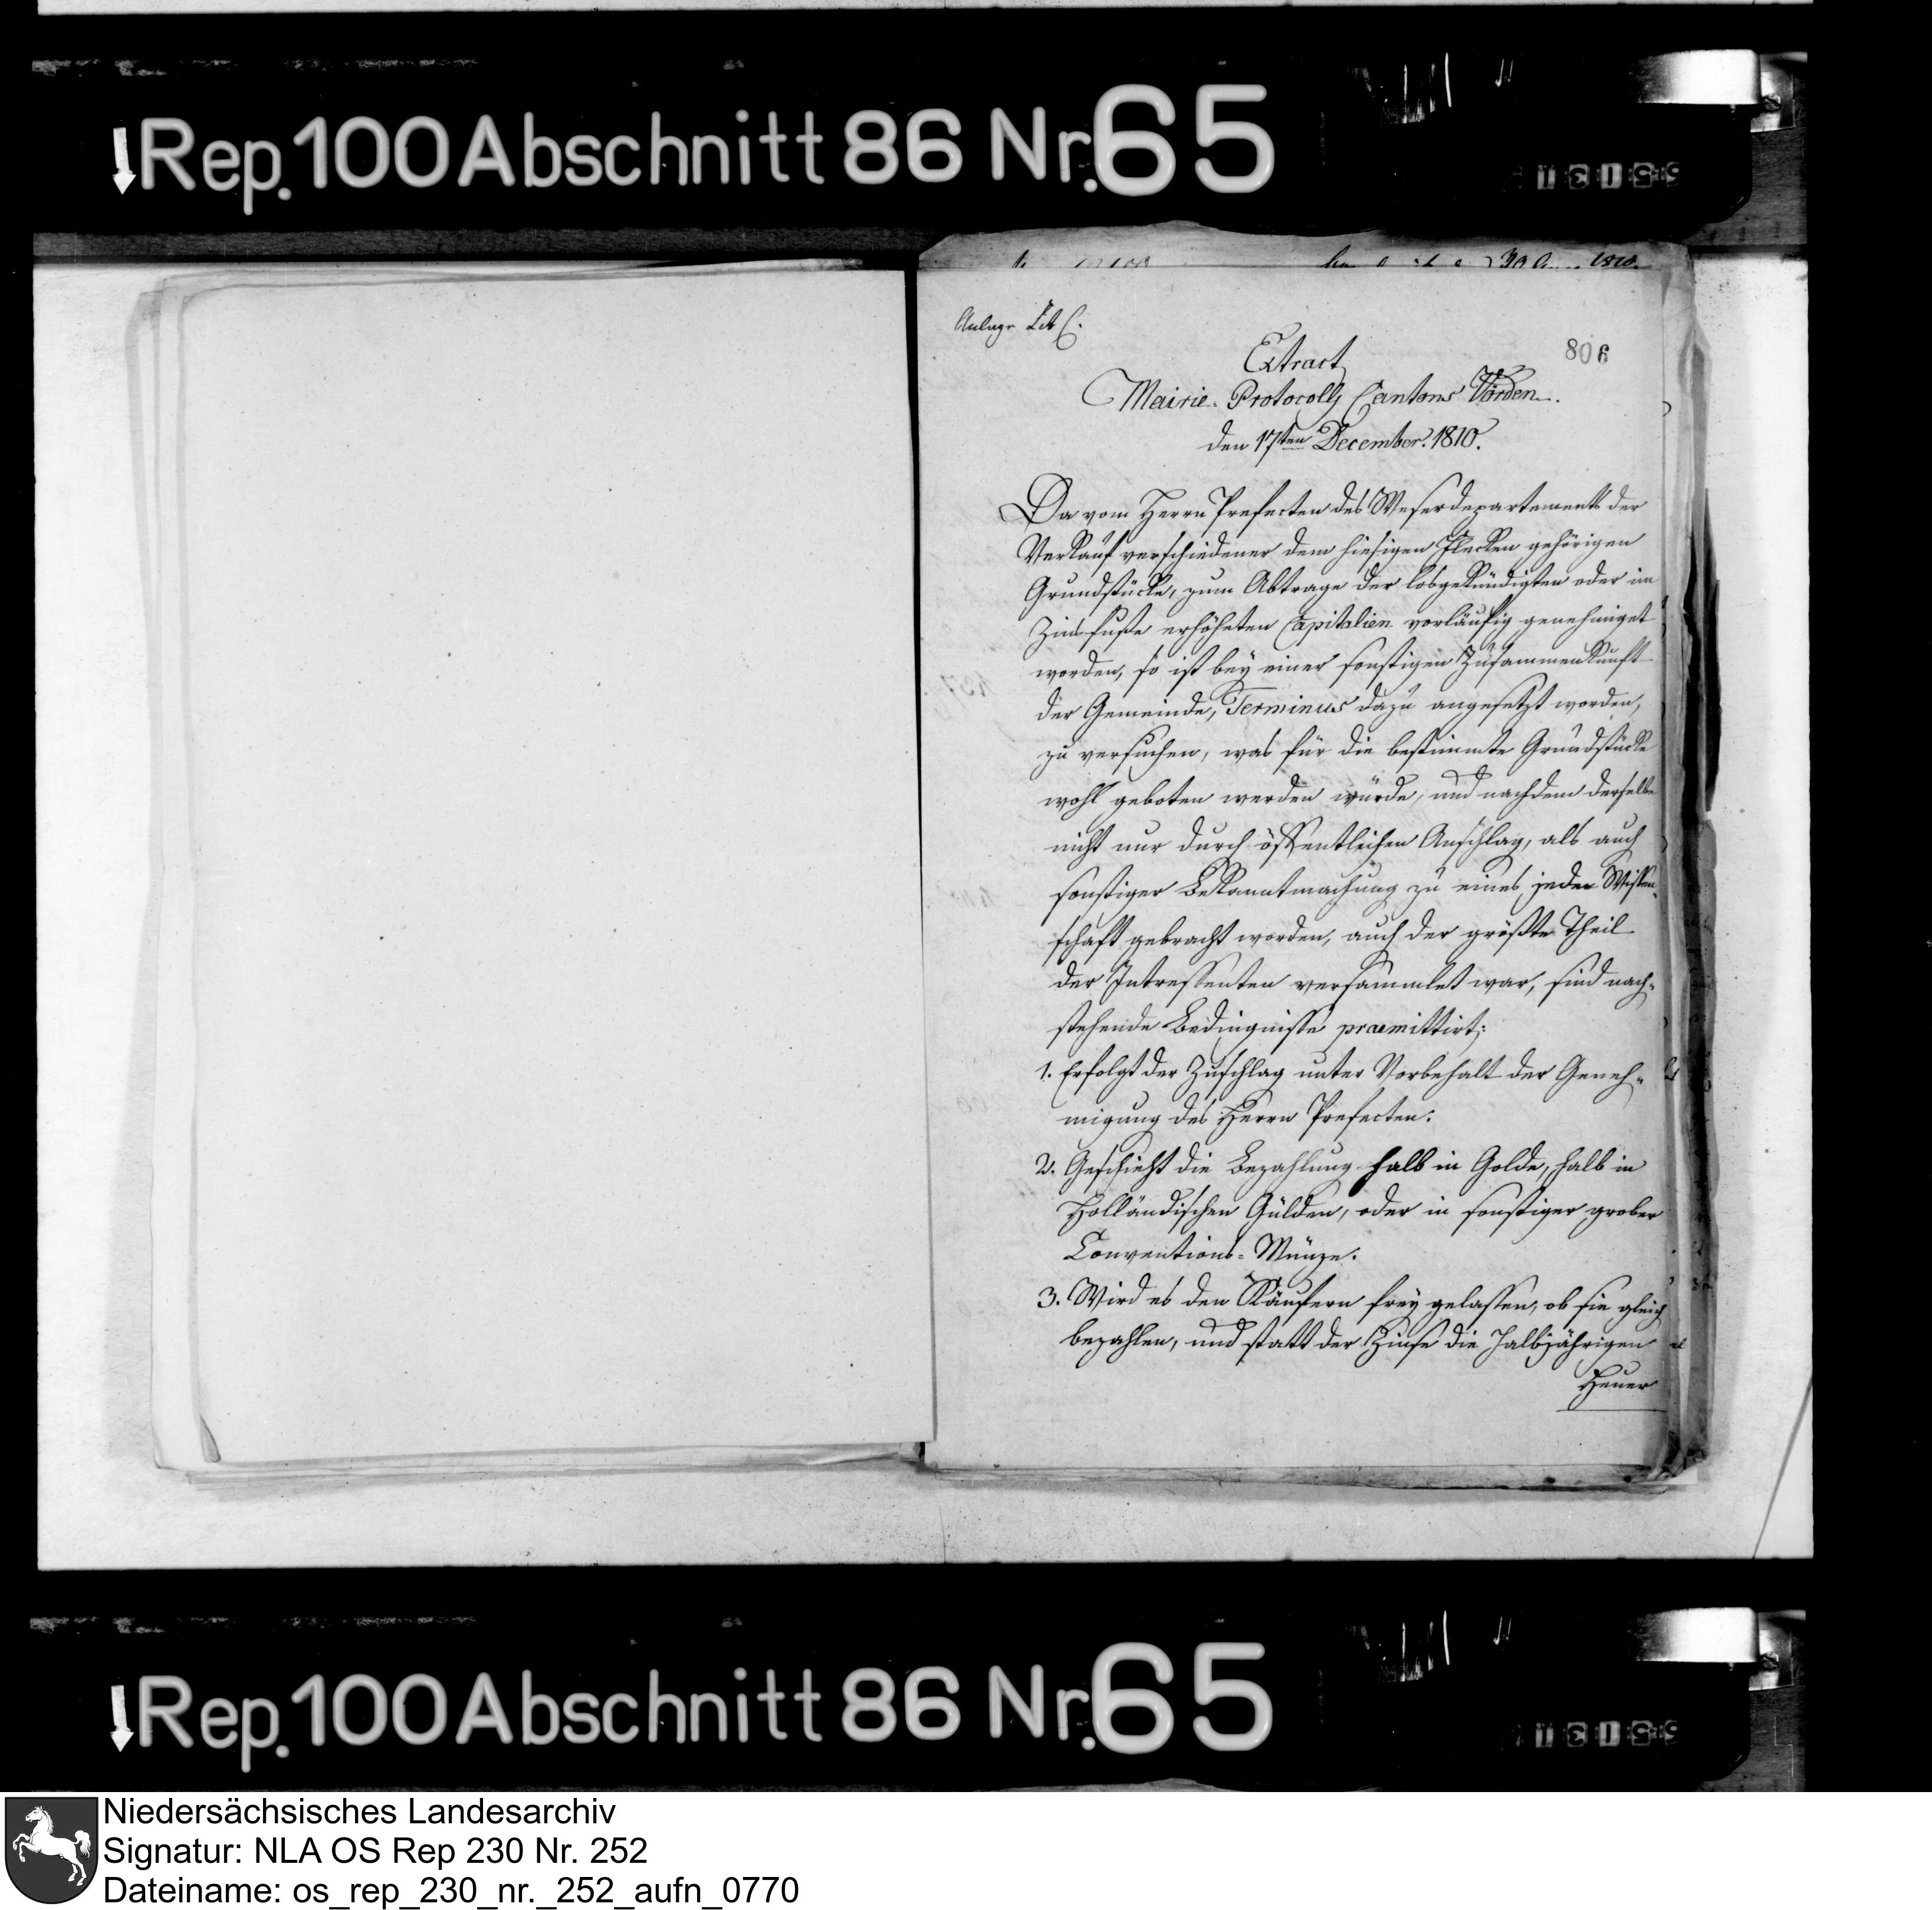 Rep. 100 Abschnitt 86 Nr. 65
Anlage Litt C.
806
Extract
Mairie-Protocolls Cantons Vörden.
den 17ten December. 1810.
Da vom Herrn Prefecten des Weserdepartements der
Verkauf verschiedener dem hiesigen Flecken gehörigen
Grundstücke, zum Abtrage der losgekündigten oder im
Zinsfuße erhöheten Capitalien vorläufig genehmiget
worden, so ist bey einer sonstigen Zusammenkunft
der Gemeinde, Terminus dazu angesetzt worden,
zu versuchen, was für die bestimmte Grundstücke
wohl geboten werden würde, und nachdem derselbe
nicht nur durch öffentlichen Anschlag, als auch
sonstiger Bekanntmachung zu eines jeden Wissen-
schaft gebracht worden, auch der größte Theil
der Intressenten versammlet war, sind nach-
stehende Bedingnisse praemittirt:
1. Erfolgt der Zuschlag unter Vorbehalt der Geneh-
migung des Herrn Prefecten.
2. Geschieht die Bezahlung halb in Golde, halb in
Holländischen Gülden, oder in sonstiger grober
Conventions-Münze.
3. Wird es den Käufern frey gelassen, ob sie gleich
bezahlen, und statt der Zinse die halbjährigen
Heuer
Rep. 100 Abschnitt 86 Nr. 65
Niedersächsisches Landesarchiv
Signatur: NLA OS Rep 230 Nr. 252
Dateiname: os_rep_230_nr._252_aufn_0770